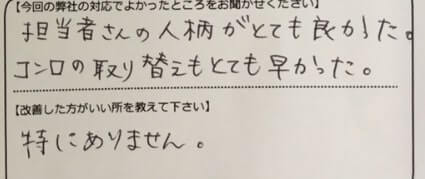 【今回の弊社の対応でよかったところをお聞かせください】
担当者さんの人柄がとても良かった。
コンロの取り替えもとても早かった。
【改善した方がいい所を教えて下さい】
特にありません。